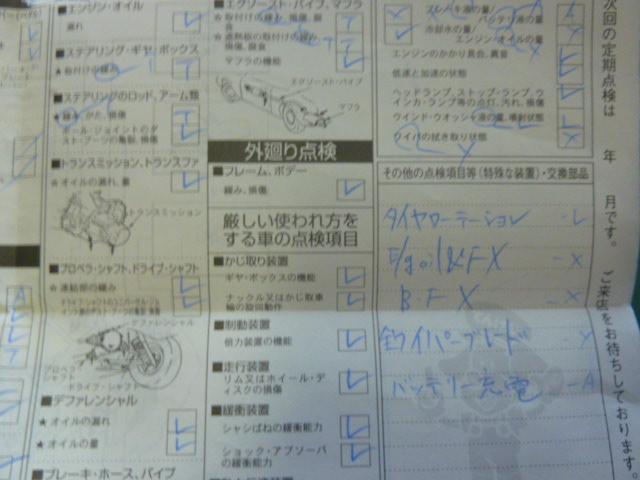 ■エンジン・オイル
漏れ
■ステアリング・ギヤ・ボックス
★取付けの緩み
■ステアリングのロッド、アーム類
★緩み、がた、損傷
ボール・ジョイントのダスト・ブーツの亀裂、損傷
■トランスミッション、トランスファ
★オイルの漏れ、量
トランスミッション
■プロペラ・シャフト、ドライブ・シャフト
★連結部の緩み
デファレンシャル
プロペラシャフト
ドライブ・シャフト
■デファレンシャル
★オイルの漏れ
★オイルの量
■ブレーキ・ホース、パイプ
■エグゾースト・パイプ、マフラ
★取付けの緩み、損傷、腐食
★遮熱板の取付けの緩み、損傷、腐食
マフラの機能
エグゾースト・パイプ
マフラ
外廻り点検
■フレーム、ボデー
緩み、損傷
厳しい使われ方を
する車の点検項目
■かじ取り装置
ギヤ・ボックスの機能
ナックル又はかじ取車
輪の旋回動作
■制動装置
倍力装置の機能
■走行装置
リム又はホイール・デ
ィスクの損傷
■緩衝装置
シャシばねの緩衝能力
ショック・アブソーバ
の緩衝能力
ブレーキ液の量
バッテリ液の量
冷却水の量
エンジン・オイルの量
エンジンのかかり具合、異音
低速と加速の状態
ヘッドランプ、ストップ・ランプ、ウ
インカ・ランプ等の点灯、汚れ、損傷
ウインド・ウオッシャ液の量、噴射状態
ワイパの拭き取り状態
その他の点検項目等(特殊な装置)・交換部品
タイヤローテーション -L
E/goil&F X -X
B・F X -X
ワイパーブレード -Y
バッテリー充電 -A
次回の定期点検は 年 月です。 ご来店をお待ちしております。